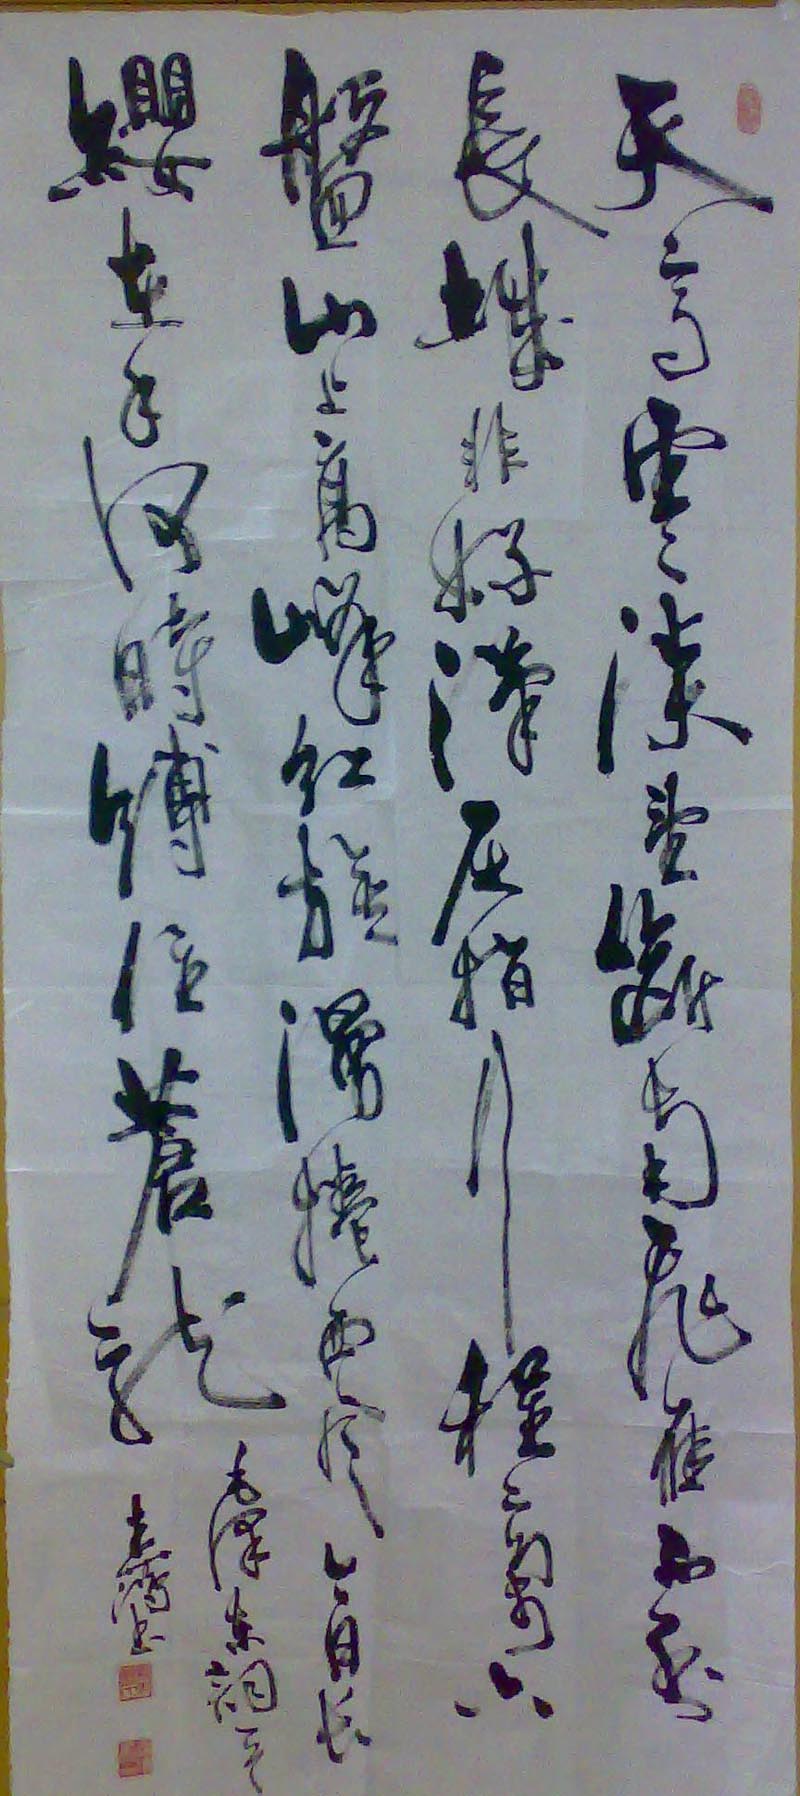 天高雲淡望斷南飛雁不到
長城非好漢屈指行程二萬六
盤山上高峰紅旗漫捲西風今日長
纓在手何時縛住蒼龍
毛澤東詞